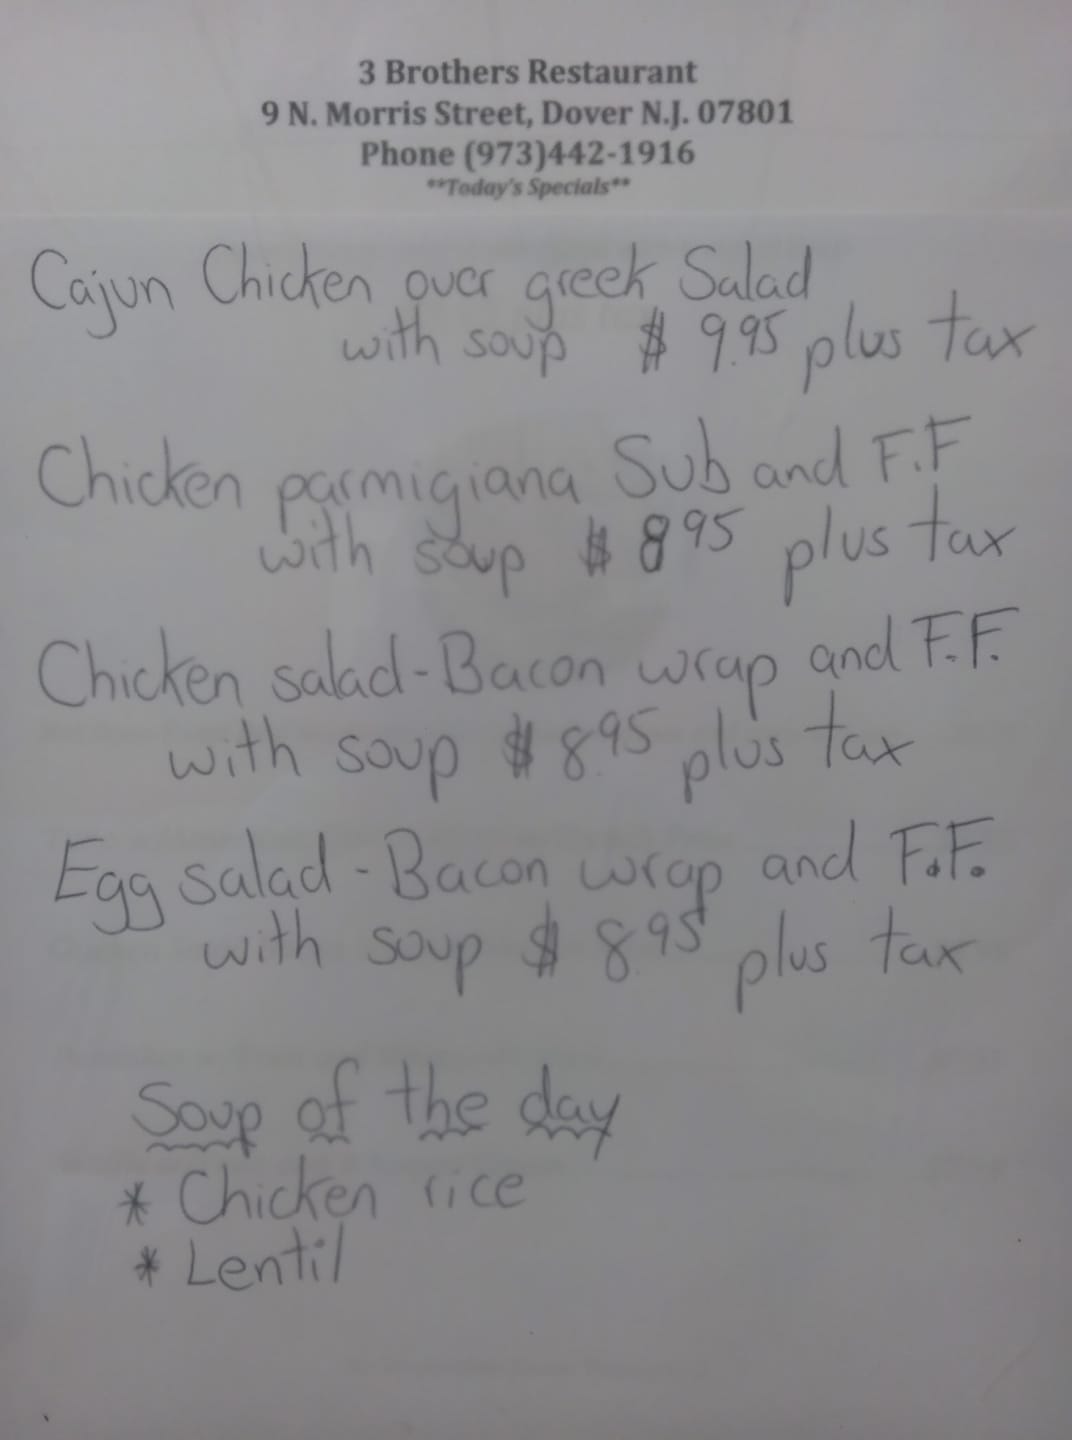 3 Brothers Restaurant
9 N. Morris Street, Dover N.J. 07801
Phone (973)442-1916
**Today's Specials**
Cajun Chicken over greek Salad
with soup $ 9.95 plus tax
Chicken parmigiana Sub and F.F
with soup $ 8 95 plus tax
Chicken salad-Bacon wrap and F.F.
with soup $ 8.95 plus tax
Egg salad - Bacon wrap and F.F.
with soup $ 8.95 plus tax
Soup of the day
* Chicken rice
* Lentil